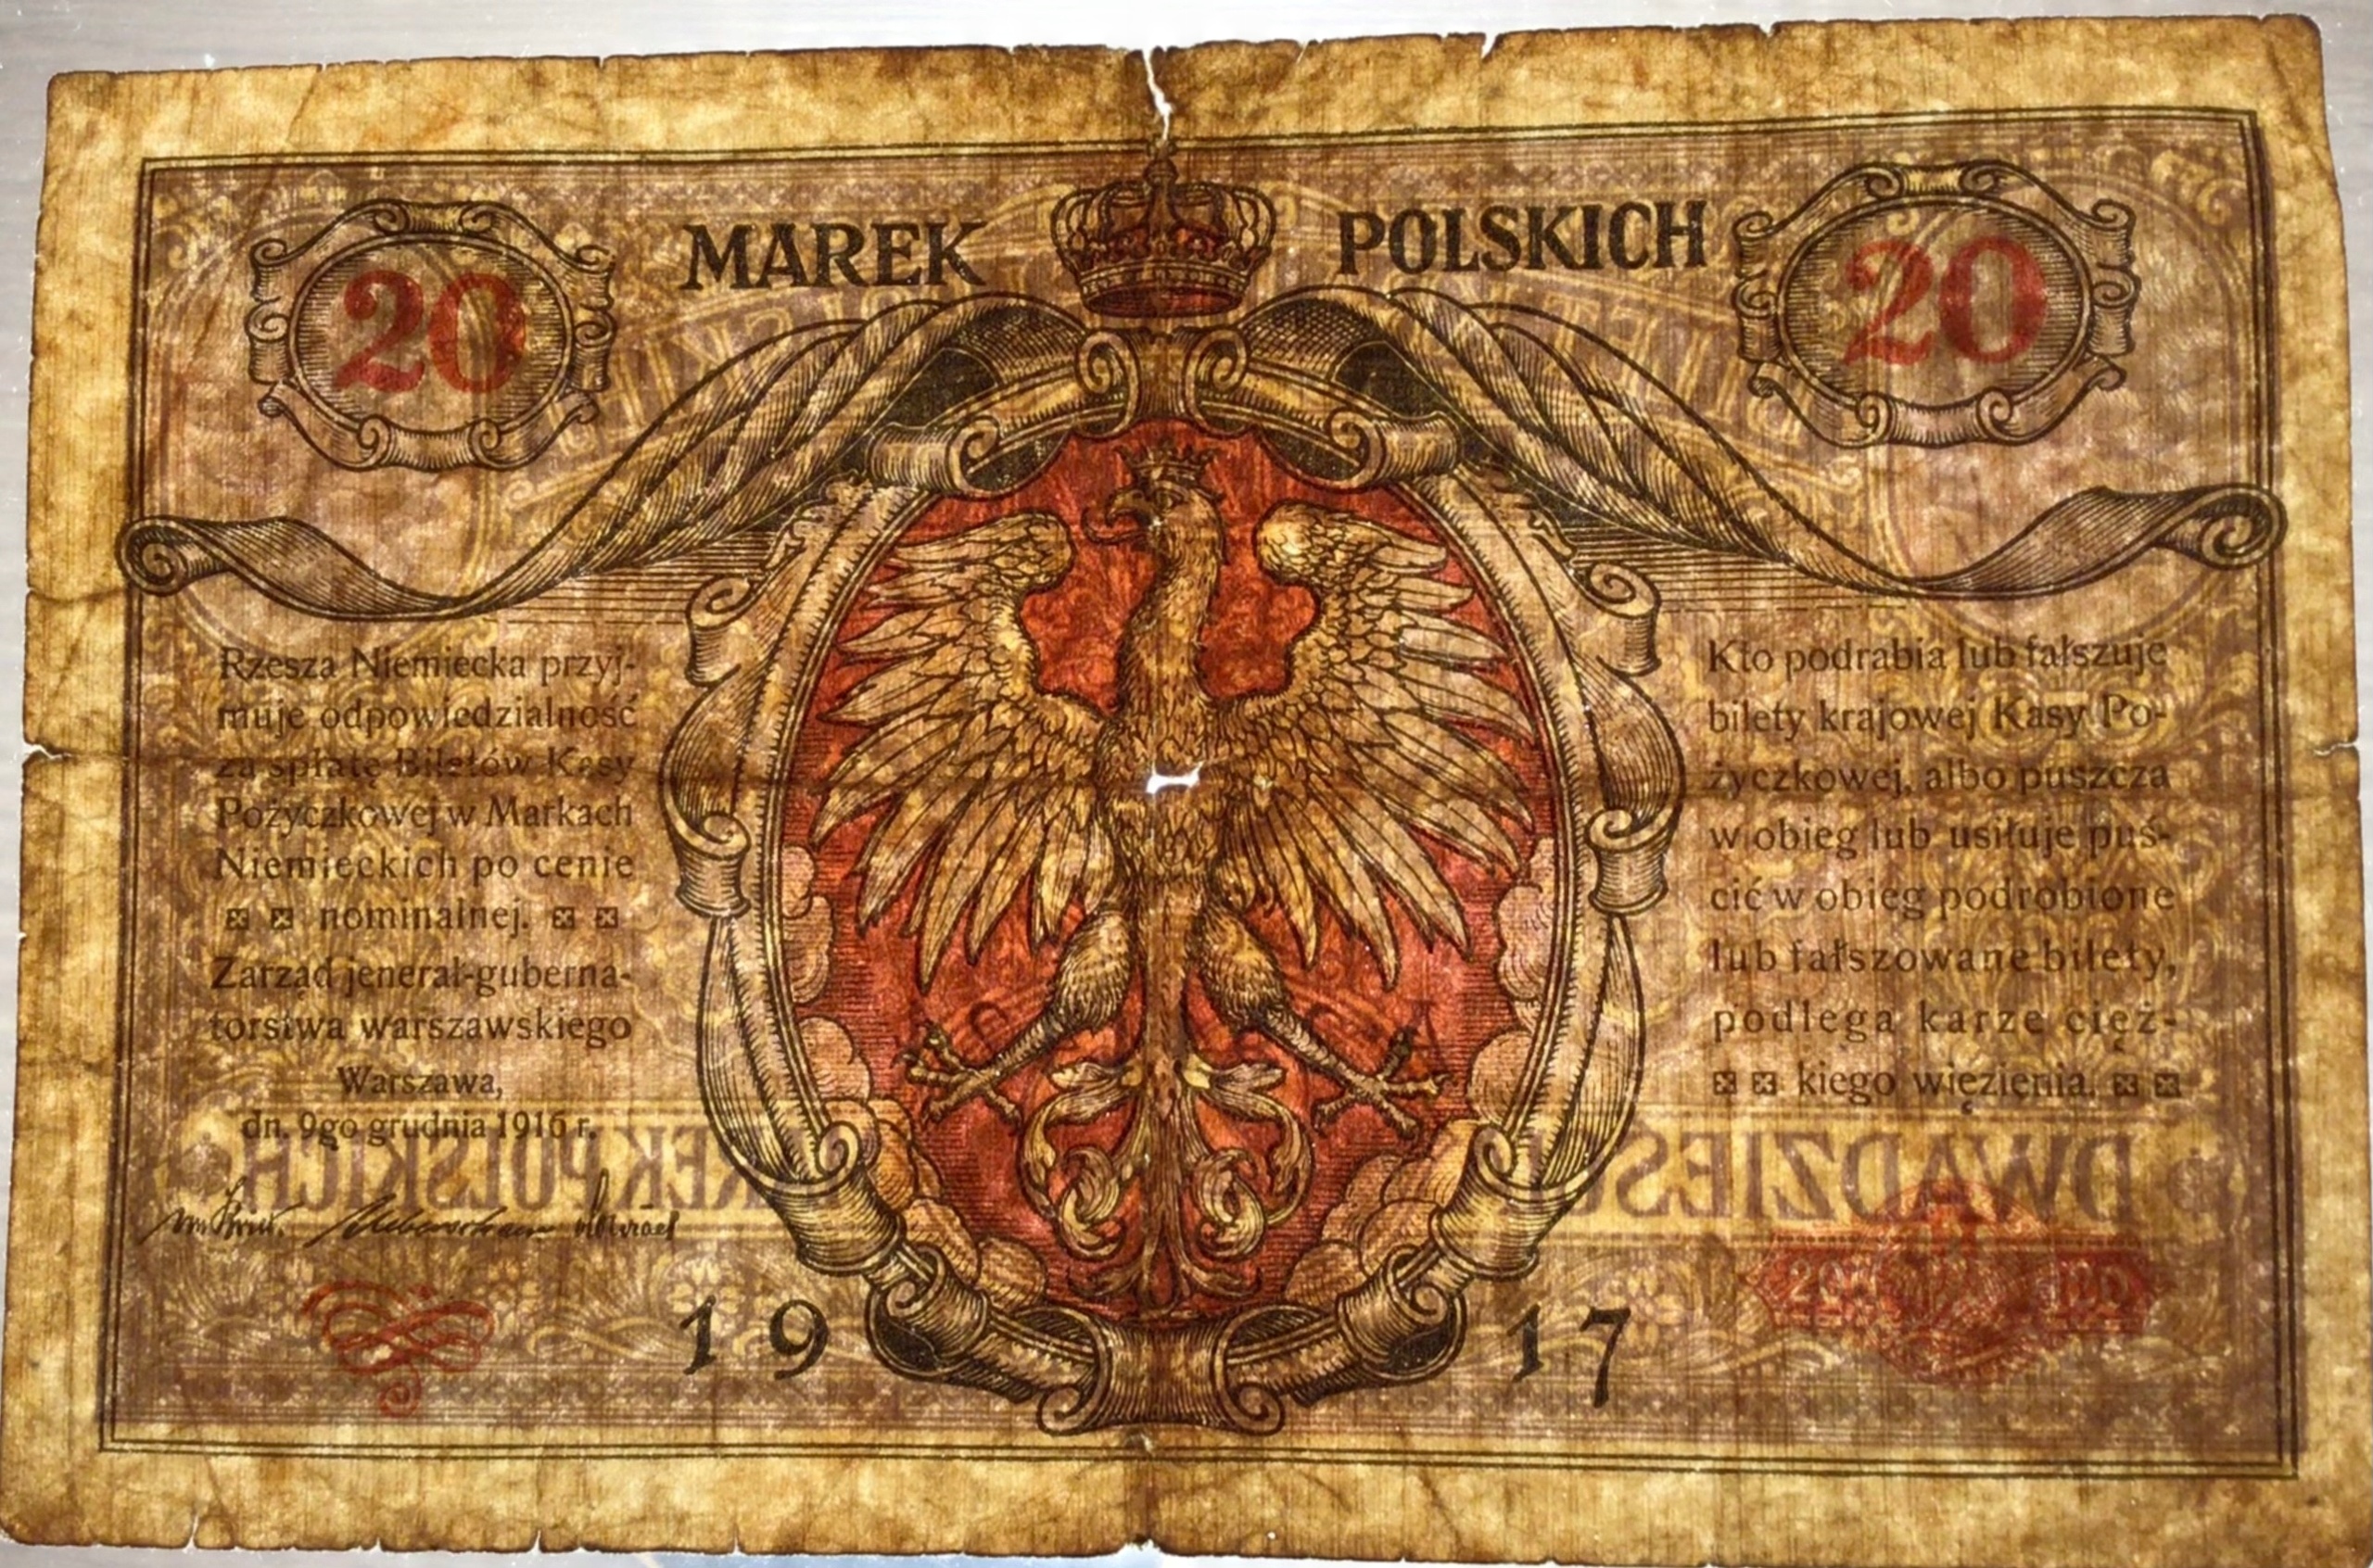 20 MAREK POLSKICH 20
Rzesza Niemiecka przyj-
muje odpowiedzialność
za spłatę Biletów Kasy
Pożyczkowej w Markach
Niemieckich po cenie
nominalnej.
Zarząd jenerał-guberna-
torstwa warszawskiego
Warszawa,
dn. 9go grudnia 1916 r.
Kto podrabia lub fałszuje
bilety krajowej Kasy Po-
życzkowej, albo puszcza
w obieg lub usiłuje puś-
cić w obieg podrobione
lub fałszowane bilety,
podlega karze cięż-
kiego więzienia.
1917